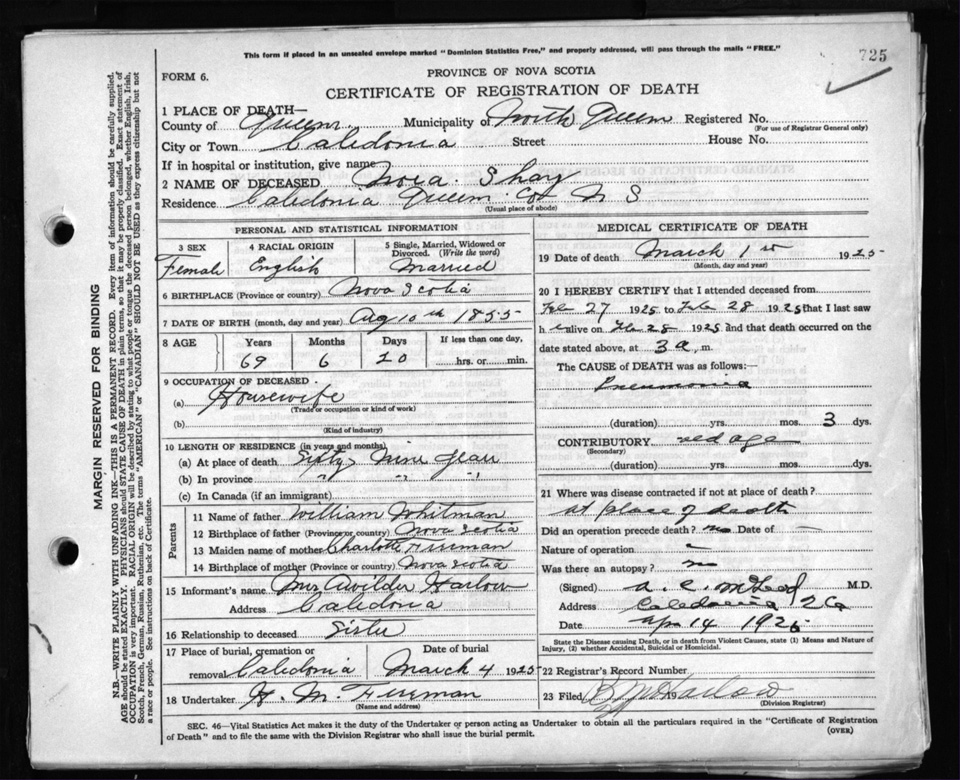 This form if placed in an unsealed envelope marked "Dominion Statistics Free," and properly addressed, will pass through the mails "FREE."
725
FORM 6.
PROVINCE OF NOVA SCOTIA
CERTIFICATE OF REGISTRATION OF DEATH
1 PLACE OF DEATH—
County of Queens Municipality of North Queens Registered No.
(For use of Registrar General only)
City or Town Caledonia Street House No.
If in hospital or institution, give name
2 NAME OF DECEASED Nora Shay
Residence Caledonia Queens Co N S
(Usual place of abode)
PERSONAL AND STATISTICAL INFORMATION
3 SEX 4 RACIAL ORIGIN 5 Single, Married, Widowed or Divorced. (Write the word)
Female English Married
6 BIRTHPLACE (Province or country) Nova Scotia
7 DATE OF BIRTH (month, day and year) Aug 10th 1855
8 AGE Years Months Days If less than one day,
69 6 20 hrs. or min.
9 OCCUPATION OF DECEASED.
(a) Housewife
(Trade or occupation or kind of work)
(b)
(Kind of industry)
10 LENGTH OF RESIDENCE (in years and months)
(a) At place of death Sixty Nine Years
(b) In province " " "
(c) In Canada (if an immigrant)
Parents
11 Name of father William Whitman
12 Birthplace of father (Province or country) Nova Scotia
13 Maiden name of mother Charlotte Freeman
14 Birthplace of mother (Province or country) Nova Scotia
15 Informant's name Mrs Avilder Harlow
Address Caledonia
16 Relationship to deceased Sister
17 Place of burial, cremation or removal Caledonia Date of burial March 4 1925
18 Undertaker H. M. Freeman
(Name and address)
MEDICAL CERTIFICATE OF DEATH
19 Date of death March 1st 1925
(Month, day and year)
20 I HEREBY CERTIFY that I attended deceased from
Feb 27 1925 to Feb 28 1925 that I last saw
h er alive on Feb 28 1925 and that death occurred on
date stated above, at 3 a, m.
The CAUSE of DEATH was as follows:—
Pneumonia
(duration) yrs. mos. 3 dys.
CONTRIBUTORY old age
(Secondary)
(duration) yrs. mos. dys.
21 Where was disease contracted if not at place of death?
at place of death
Did an operation precede death? no Date of —
Nature of operation —
Was there an autopsy? no
(Signed) A. C. McLeod M.D.
Address Caledonia 2 Co
Date Apr 14 1925
State the Disease causing Death, or in death from Violent Causes, state (1) Means and Nature of Injury, (2) whether Accidental, Suicidal or Homicidal.
22 Registrar's Record Number
23 Filed Harlow
(Division Registrar)
SEC. 46—Vital Statistics Act makes it the duty of the Undertaker or person acting as Undertaker to obtain all the particulars required in the "Certificate of Registration
of Death" and to file the same with the Division Registrar who shall issue the burial permit.
(OVER)
MARGIN RESERVED FOR BINDING
N.B.—WRITE PLAINLY WITH UNFADING INK—THIS IS A PERMANENT RECORD. Every item of information should be carefully supplied.
AGE should be stated EXACTLY. PHYSICIANS should STATE CAUSE OF DEATH in plain terms, so that it may be properly classified. Exact statement of
OCCUPATION is very important. RACIAL ORIGIN will be described by stating to what people or tongue the deceased person belonged, whether English, Irish,
Scotch, French, German, Russian, Ruthenian, etc. The terms "AMERICAN" or "CANADIAN" SHOULD NOT BE USED as they express citizenship but not
a race or people. See instructions on back of Certificate.